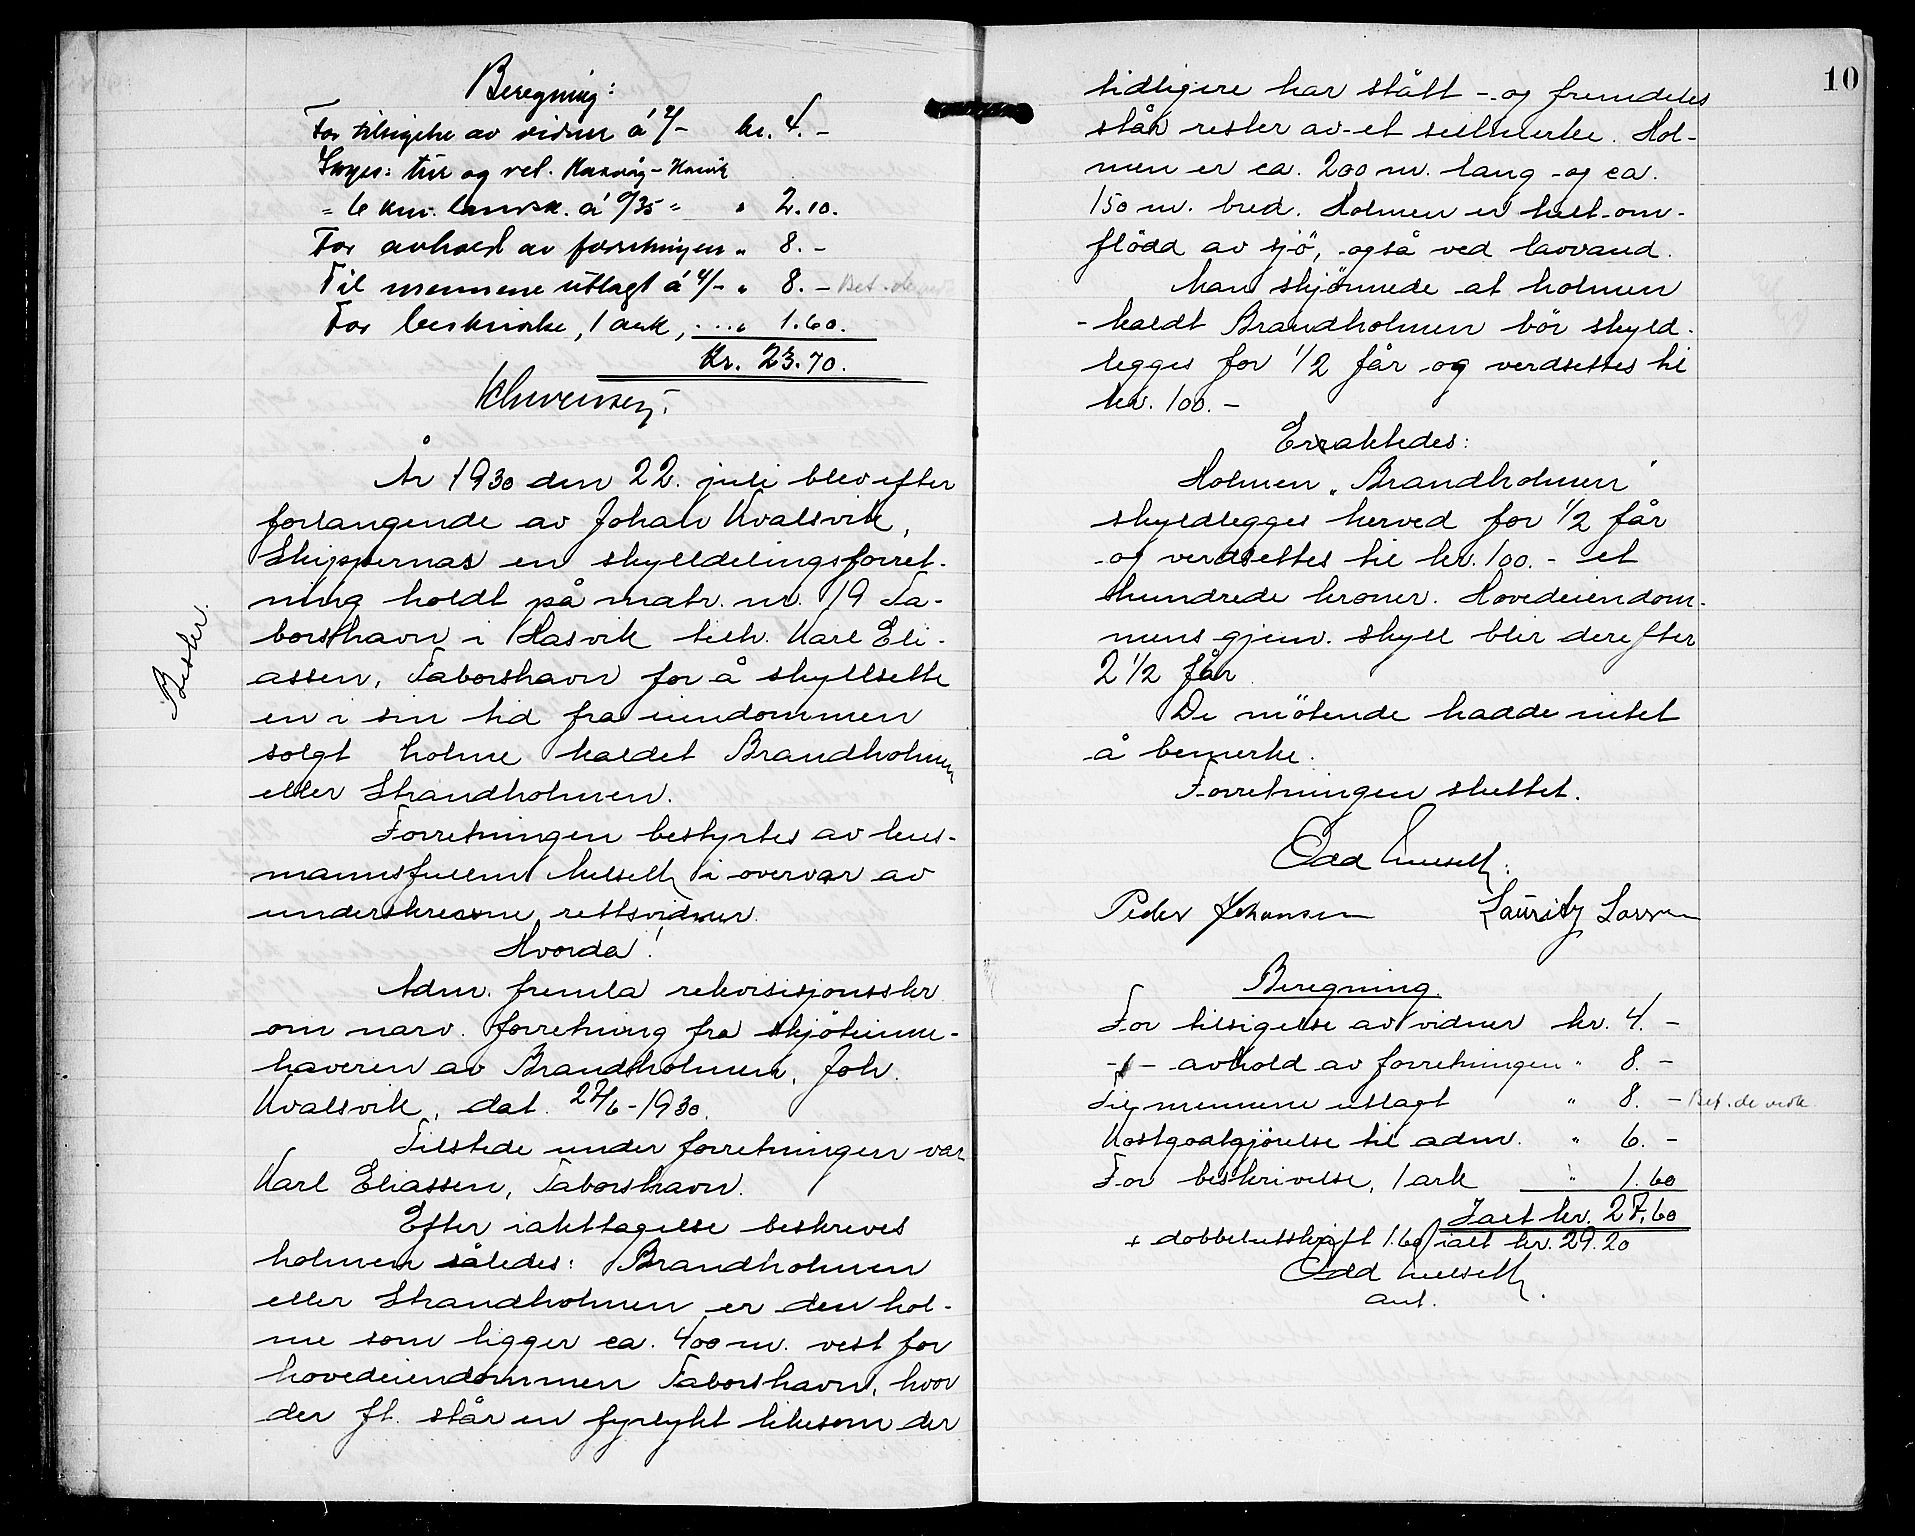 Beregning:
For tilsigelse av vidner á 2/- kr. 4.-
Skyss: tur og ret. Hasvåg - Hasvik
" 6 km. landsk. á 0/35 " " 2.10.
For avhold av forretningen " 8.-
Til mennene utlagt á 4/- " 8.- Bet.
For beskrivelse, 1 ark, ... " 1.60.
Kr. 23.70.
År 1930 den 22. juli blev efter
forlangende av Johan Kvalsvik,
Skippernas en skylldelingsforret-
ning holdt på matr. nr. 19 Ta-
borshavn i Hasvik tilh. Karl Eli-
assen, Taborshavn for å skyllsette
en i sin tid fra eiendommen
solgt holme kaldet Brandholmen
eller Strandholmen.
Beskr.
Forretningen bestyrtes av lens-
mannsfullm Melseth i overvær av
underskrevne rettsvidner.
Hvorda!
Adm. fremla rekvisisjonsskr
om nærv. forretning fra skjöteinne-
haveren av Brandholmen, Joh.
Kvalsvik, dat. 27/6-1930.
Tilstede under forretningen var
Karl Eliassen, Taborshavn.
Efter iakttagelse beskrives
holmen således: Brandholmen
eller Strandholmen er den hol-
me som ligger ca. 400 m. vest for
hovedeiendommen Taborshavn, hvor
der ft. står en fyrlykt likesom der
10
tidligere har stått - og fremdeles
står rester av - et seilmerke. Hol-
men er ca. 200 m. lang og ca.
150 m. bred. Holmen er helt om-
flödd av sjö, også ved lavvand.
Man skjönnede at holmen
- kaldt Brandholmen bör skyld-
legges for 1/2 får og verdsettes til
kr. 100.-
Eraktedes:
Holmen "Brandholmen"
skyldlegges herved for 1/2 får
og verdsettes til kr. 100.- et
hundrede kroner. Hovedeiendom-
mens gjenv. skyll blir derefter
2 1/2 får.
De mötende hadde intet
å bemerke.
Forretningen sluttet.
Odd Melseth.
Peder Johansen Lauritz Larsen
Beregning.
For tilsigelse av vidner kr. 4.-
-"- avhold av forretningen " 8.-
Til mennene utlagt " 8.- Bet. de vedk
Kostgodtgjörelse til adm. " 6.-
For beskrivelse, 1 ark " 1.60
Ialt kr. 27,60
+ dobbelutskrift 1.60 ialt kr. 29.20
Odd Melseth.
aut.